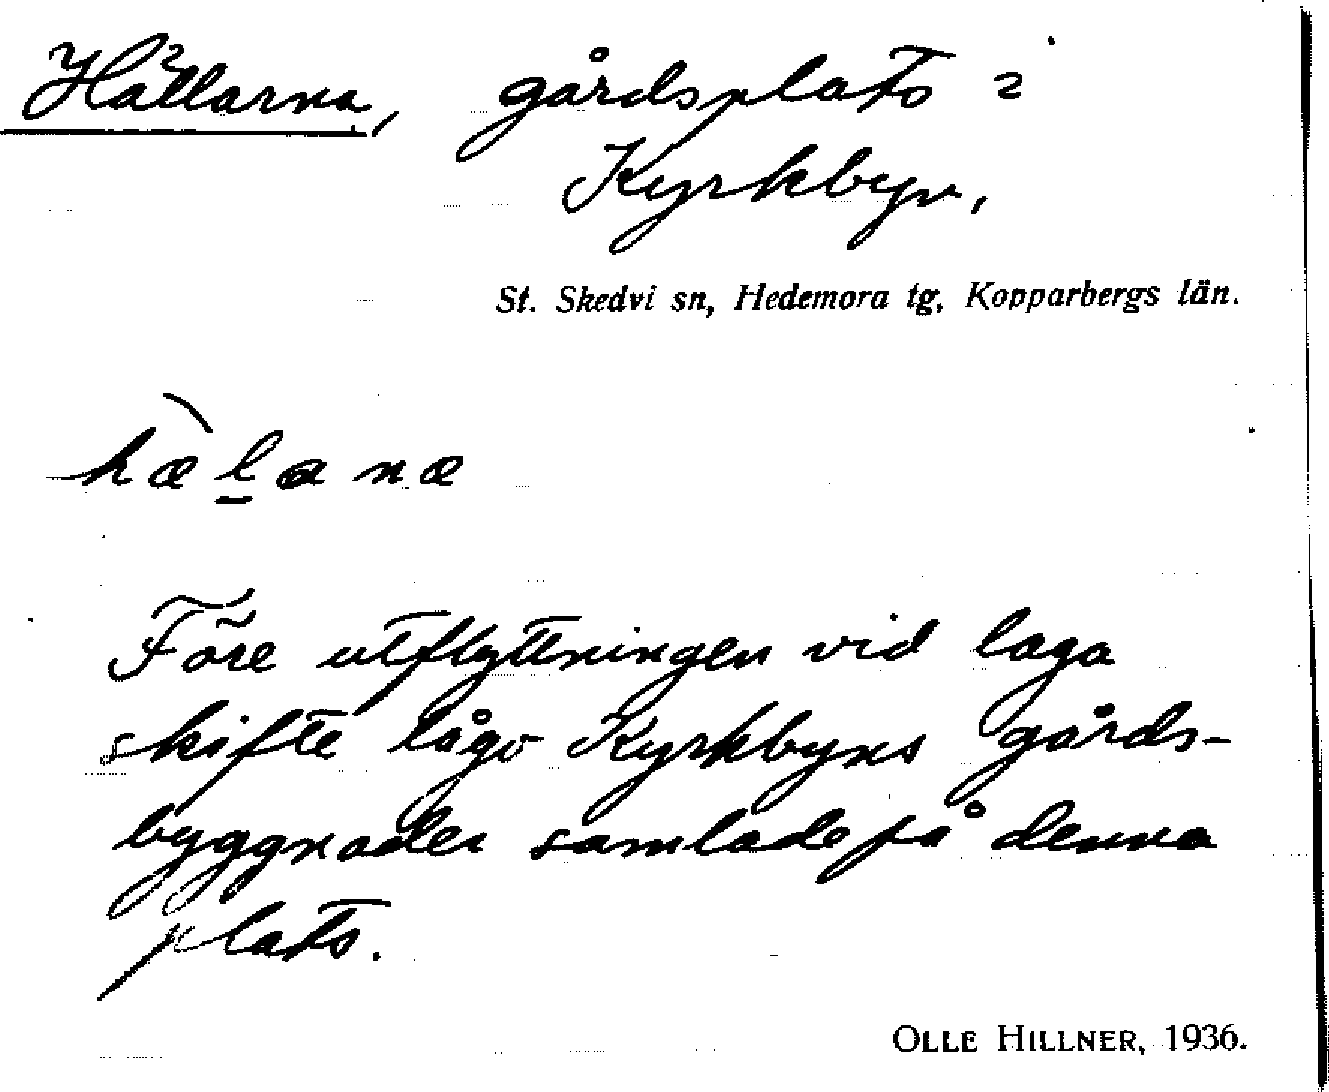 Hällarna, gårdsplats i
Kyrkbyn,
St. Skedvi sn, Hedemora tg, Kopparbergs län.
hæ̀l̠anæ
Före utflyttningen vid laga
skifte lågo Kyrkbyns gårds-
byggnader samlade på denna
plats.
OLLE HILLNER, 1936.